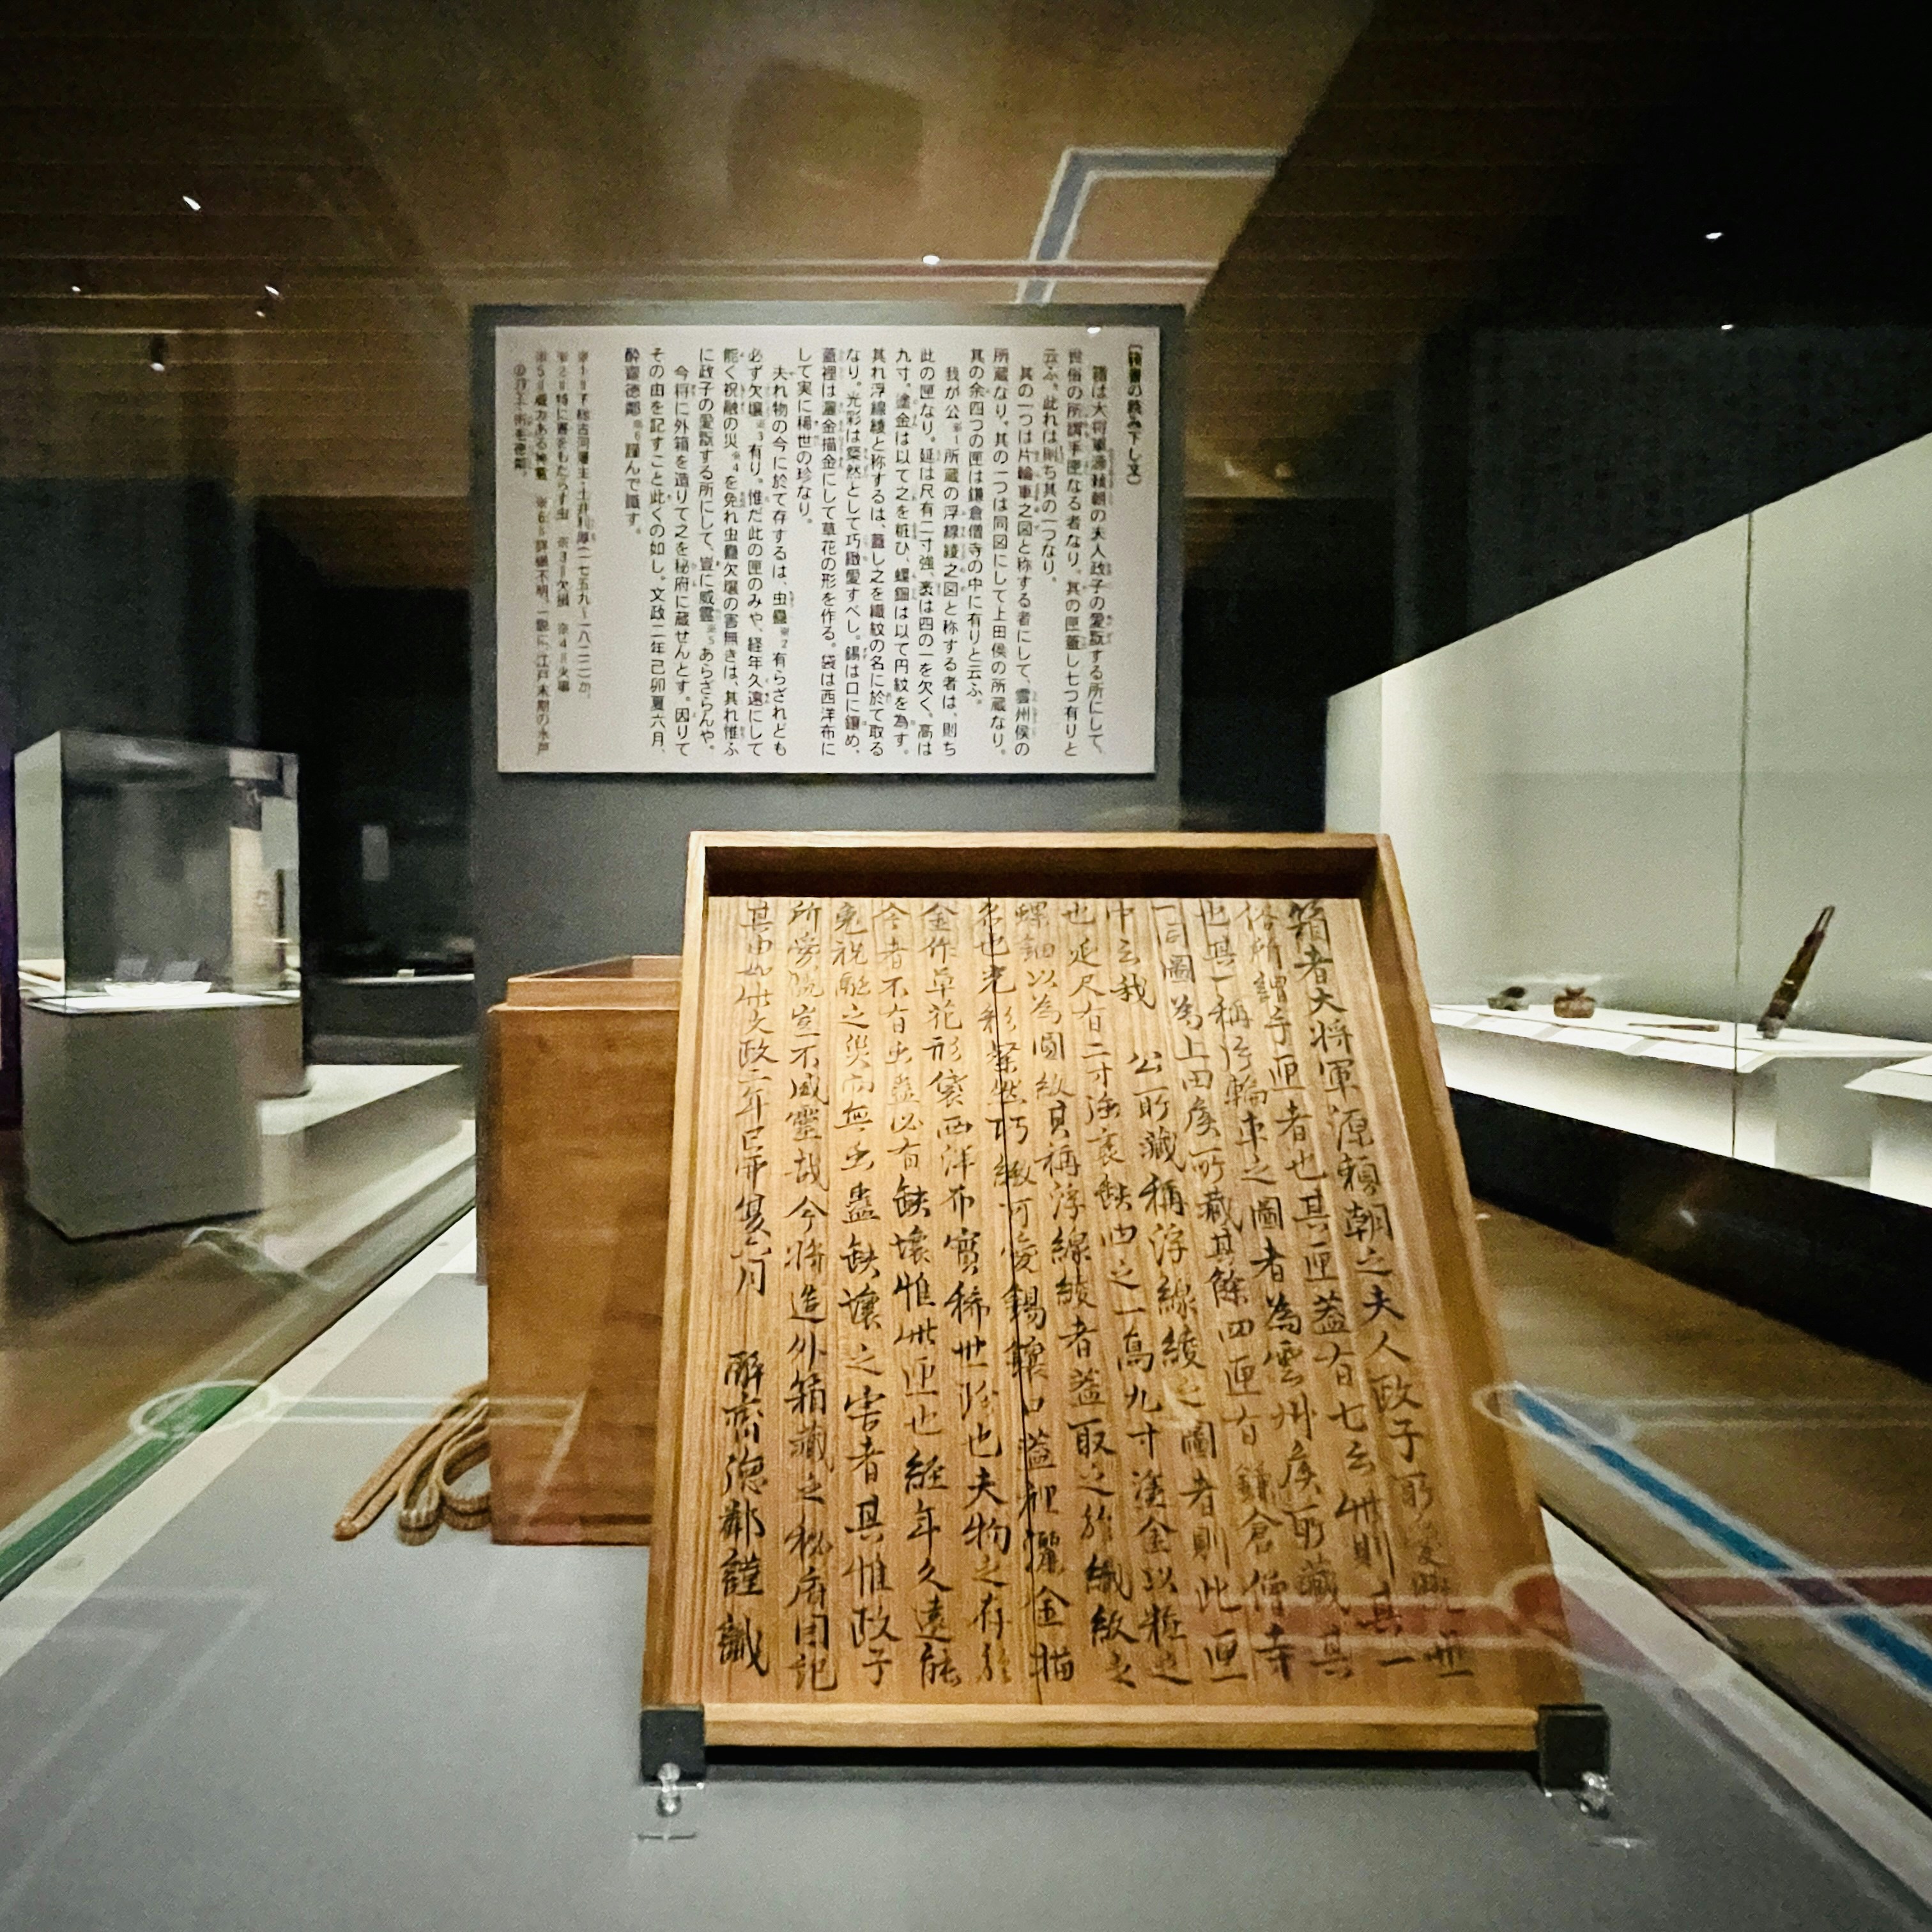 〔箱書の読み下し文〕
籍は大将軍源頼朝の夫人政子の愛翫する所にして、
世俗の所謂手匣なる者なり。其の匣蓋し七つ有りと
云ふ。此れは則ち其の一つなり。
其の一つは片輪車之図と称する者にして、雲州侯の
所蔵なり。其の一つは同図にして上田侯の所蔵なり。
其の余四つの匣は鎌倉僧寺の中に有りと云ふ。
我が公※1所蔵の浮線綾之図と称する者は、則ち
此の匣なり。延は尺有二寸強、袤は四の一を欠く。高は
九寸。塗金は以て之を粧ひ、螺鈿は以て円紋を為す。
其れ浮線綾と称するは、蓋し之を織紋の名に於て取る
なり。光彩は粲然として巧緻愛すべし。錫は口に鑲め、
蓋裡は灑金描金にして草花の形を作る。袋は西洋布に
して実に稀世の珍なり。
夫れ物の今に於て存するは、虫蠱※2有らざれども
必ず欠壊※3有り。惟だ此の匣のみや、経年久遠にして
能く祝融の災※4を免れ虫蠱欠壊の害無きは、其れ惟ふ
に政子の愛翫する所にして、豈に威霊※5あらざらんや。
今将に外箱を造りて之を秘府に蔵せんとす。因りて
その由を記すこと此くの如し。文政二年己卯夏六月、
酔齋徳鄰※6謹んで識す。
※1=下総古河藩主・土井利厚(一七五九〜一八二二)か、
※2=特に害をもたらす虫 ※3=欠損 ※4=火事
※5=威力ある神霊 ※6=詳細不明。一説に、江戸末期の水戸
箱者大将軍源頼朝之夫人政子所愛翫世
俗所謂手匣者也其匣蓋有七云此則其一
也其一稱片輪車之圖者為雲州侯所藏其
一同圖為上田侯所藏其餘四匣有鎌倉僧寺
中云我 公所藏稱浮線綾之圖者則此匣
也延尺有二寸強袤缺四之一高九寸塗金以粧之
螺鈿以為圓紋其稱浮線綾者蓋取之於織紋之
名也光彩粲然巧緻可愛錫鑲口蓋裡灑金描
金作草花形袋西洋布實稀世珍也夫物之存於
今者不有虫蠱必有缺壊惟此匣也経年久遠能
免祝融之災而無虫蠱缺壊之害者其惟政子
所愛翫豈不威靈哉今将造外箱藏之秘府因記
其由如此文政二年己卯夏六月 酔齋德鄰謹識